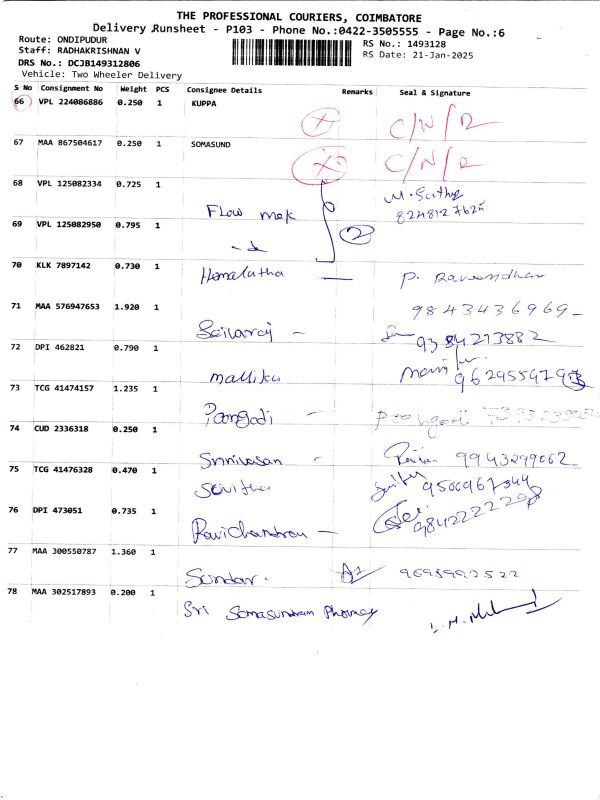 THE PROFESSIONAL COURIERS, COIMBATORE
Delivery Runsheet - P103 - Phone No.:0422-3505555 - Page No.:6
Route: ONDIPUDUR
RS No.: 1493128
Staff: RADHAKRISHNAN V
RS Date: 21-Jan-2025
DRS No.: DCJB149312806
Vehicle: Two Wheeler Delivery
S No Consignment No Weight PCS Consignee Details Remarks Seal & Signature
66 VPL 224086886 0.250 1 KUPPA
C/N/R
67 MAA 867504617 0.250 1 SOMASUND
C/N/R
68 VPL 125082334 0.725 1
Flow mek
69 VPL 125082950 0.795 1
2
70 KLK 7897142 0.730 1
Hemalatha P. Raveendhar
71 MAA 576947653 1.920 1 9843436969
Selvaraj 9384213882
72 DPI 462821 0.790 1
Mallika
73 TCG 41474157 1.235 1
Poongodi Poongodi
74 CUD 2336318 0.250 1
Srinivasan 9943299062
75 TCG 41476328 0.470 1
Savitha 9500967344
76 DPI 473051 0.735 1
Ravichandran 9842222298
77 MAA 300550787 1.360 1
Sundar.
78 MAA 302517893 0.200 1
Sri Somasundram